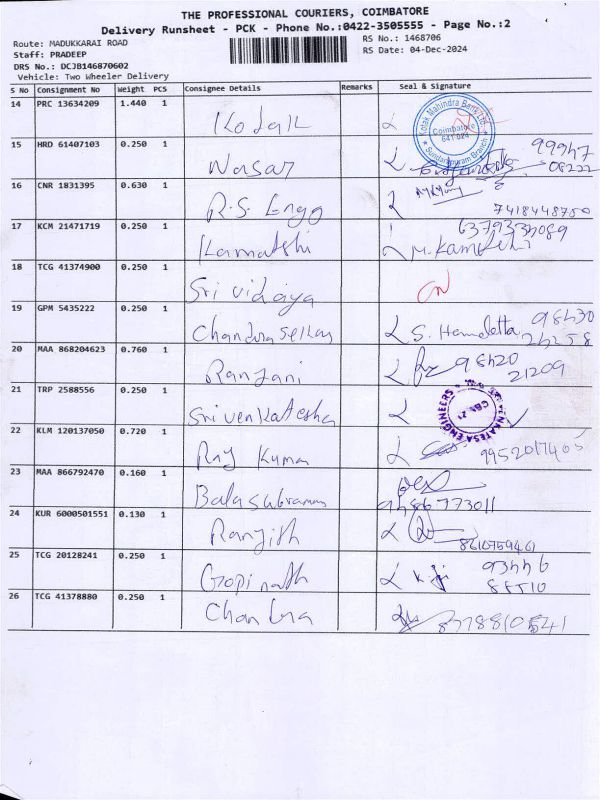 THE PROFESSIONAL COURIERS, COIMBATORE
Delivery Runsheet - PCK - Phone No.:0422-3505555 - Page No.:2
Route: MADUKKARAI ROAD
RS No.: 1468706
Staff: PRADEEP
RS Date: 04-Dec-2024
DRS No.: DCJB146870602
Vehicle: Two Wheeler Delivery
S No Consignment No Weight PCS Consignee Details Remarks Seal & Signature
14 PRC 13634209 1.440 1 Kotak
Kotak Mahindra Bank Ltd.
Coimbatore
641 024
Sundarapuram Branch
15 HRD 61407103 0.250 1 Nasar 99947
08222
16 CNR 1831395 0.630 1 R.S. Engg 7418448750
17 KCM 21471719 0.250 1 Kamatshi
M. 
18 TCG 41374900 0.250 1 Sri vidaiya
19 GPM 5435222 0.250 1 Chandrasekar S. 98430
20 MAA 868204623 0.760 1 Ranjani 98420
21209
21 TRP 2588556 0.250 1 Srivenkatesha
ENGINEERS
CBE-21
22 KLM 120137050 0.720 1 Raj Kumar 9952017405
23 MAA 866792470 0.160 1 Balasubraman
9486773011
24 KUR 6000501551 0.130 1 Ranjith 8610759461
25 TCG 20128241 0.250 1 Gopinath 93446
88510
26 TCG 41378880 0.250 1 Chandra